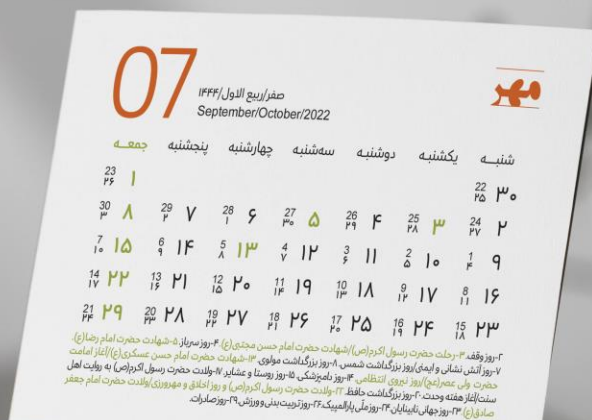 07
مهر
صفر/ربیع الاول/۱۴۴۴
September/October/2022
شنبـه یکشنبه دوشنبه سه‌شنبه چهارشنبه پنجشنبه جمعـه
۳۰ 22 ۲۵ ۱ 23 ۲۶
۲ 24 ۲۷ ۳ 25 ۲۸ ۴ 26 ۲۹ ۵ 27 ۳۰ ۶ 28 ۱ ۷ 29 ۲ ۸ 30 ۳
۹ 1 ۴ ۱۰ 2 ۵ ۱۱ 3 ۶ ۱۲ 4 ۷ ۱۳ 5 ۸ ۱۴ 6 ۹ ۱۵ 7 ۱۰
۱۶ 8 ۱۱ ۱۷ 9 ۱۲ ۱۸ 10 ۱۳ ۱۹ 11 ۱۴ ۲۰ 12 ۱۵ ۲۱ 13 ۱۶ ۲۲ 14 ۱۷
۲۳ 15 ۱۸ ۲۴ 16 ۱۹ ۲۵ 17 ۲۰ ۲۶ 18 ۲۱ ۲۷ 19 ۲۲ ۲۸ 20 ۲۳ ۲۹ 21 ۲۴
۲-روز وقف. ۳-رحلت حضرت رسول اکرم(ص)/شهادت حضرت امام حسن مجتبی(ع) ۴-روز سرباز. ۵-شهادت حضرت امام رضا(ع).
۷-روز آتش نشانی و ایمنی/روز بزرگداشت شمس. ۸-روز بزرگداشت مولوی. ۱۳-شهادت حضرت امام حسن عسکری(ع)/آغاز امامت
حضرت ولی عصر(عج)/روز نیروی انتظامی. ۱۴-روز دامپزشکی. ۱۵-روز روستا و عشایر. ۱۷-ولادت حضرت رسول اکرم(ص) به روایت اهل
سنت/آغاز هفته وحدت. ۲۰-روز بزرگداشت حافظ. ۲۲-ولادت حضرت رسول اکرم(ص) و روز اخلاق و مهرورزی/ولادت حضرت امام جعفر
صادق(ع) ۲۳-روز جهانی نابینایان. ۲۴-روز ملی پارالمپیک. ۲۶-روز تربیت بدنی و ورزش. ۲۹-روز صادرات.